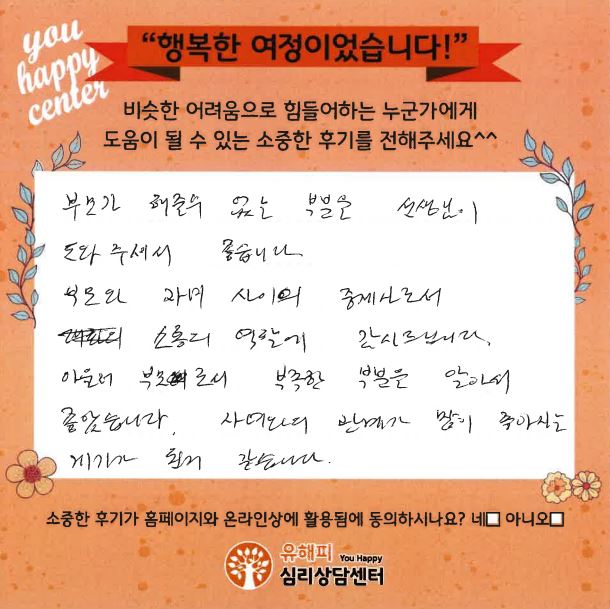 you
happy
center
“행복한 여정이었습니다!”
비슷한 어려움으로 힘들어하는 누군가에게
도움이 될 수 있는 소중한 후기를 전해주세요^^
부모가 해줄수 없는 부분을 선생님이
도와 주셔서 좋습니다.
부모와 자녀 사이의 중재자로서
소통의 역할에 감사드립니다.
아울러 부모로서 부족한 부분을 알아서
좋았습니다. 자녀와의 관계가 많이 좋아지는
계기가 된거 같습니다.
소중한 후기가 홈페이지와 온라인상에 활용됨에 동의하시나요? 네□ 아니오□
유해피 You Happy
심리상담센터